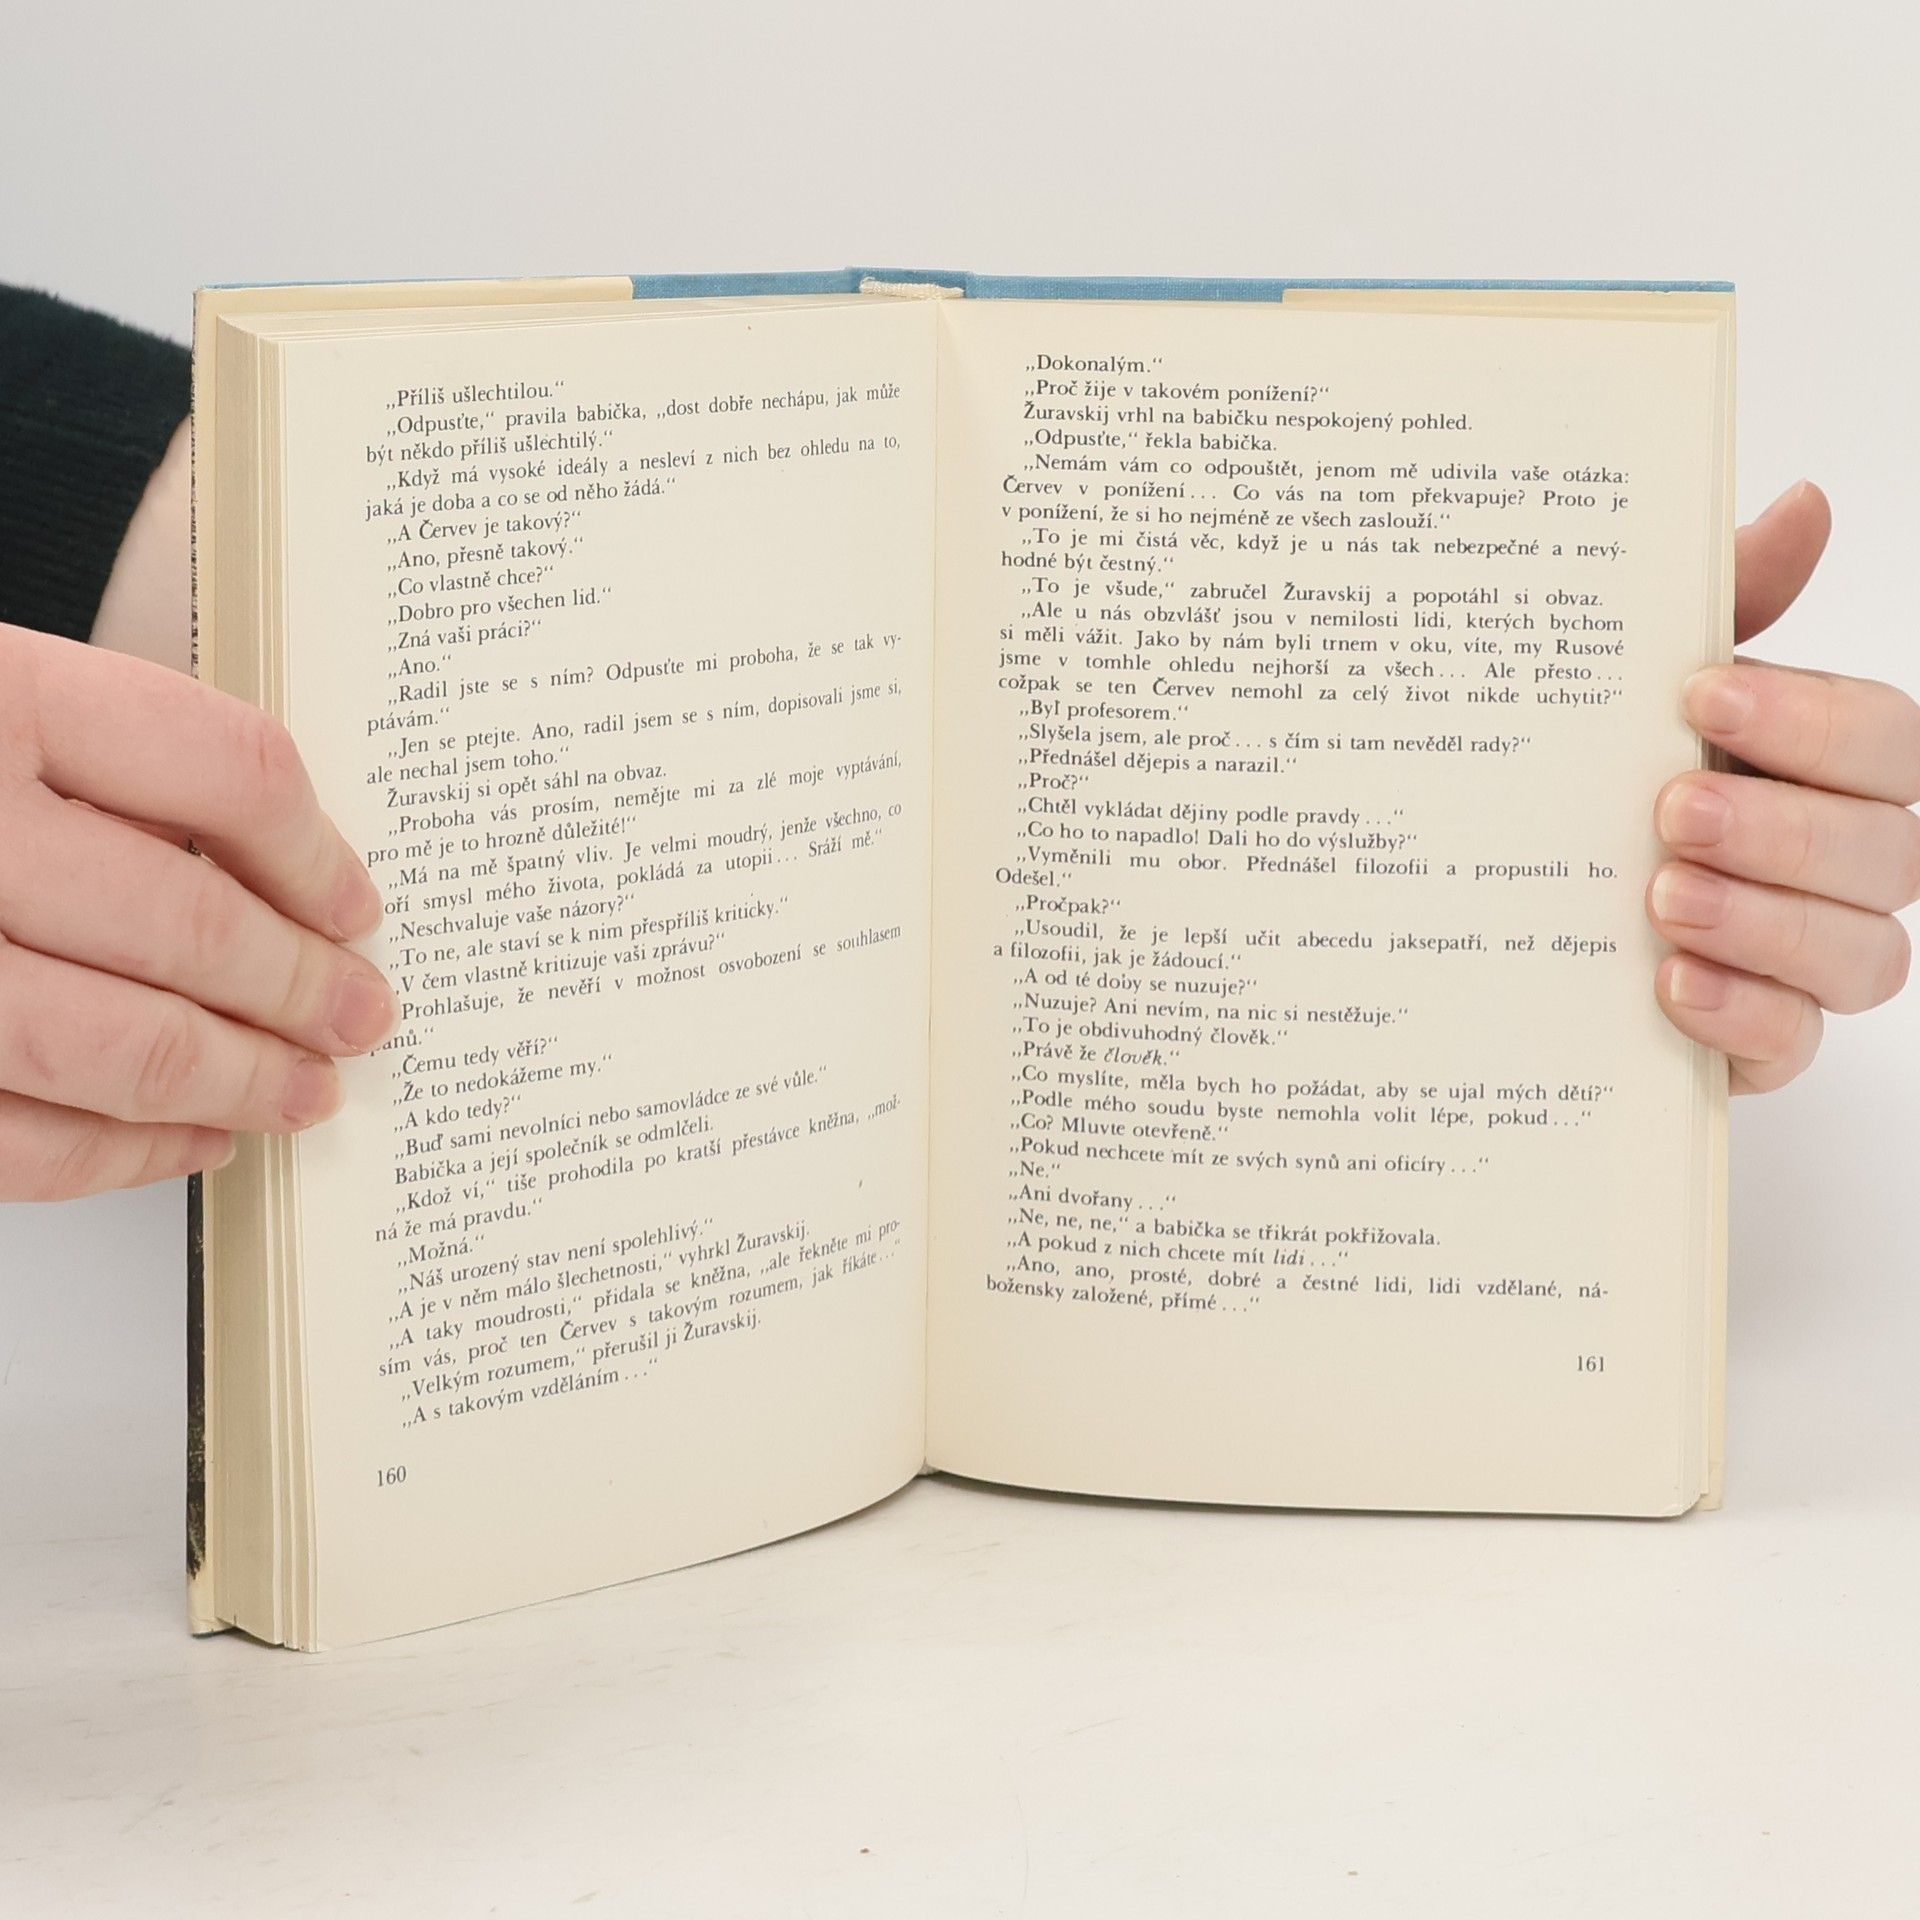 „Příliš ušlechtilou.“
„Odpusťte,“ pravila babička, „dost dobře nechápu, jak může
být někdo příliš ušlechtilý.“
„Když má vysoké ideály a nesleví z nich bez ohledu na to,
jaká je doba a co se od něho žádá.“
„A Červev je takový?“
„Ano, přesně takový.“
„Co vlastně chce?“
„Dobro pro všechen lid.“
„Zná vaši práci?“
„Ano.“
„Radil jste se s ním? Odpusťte mi proboha, že se tak vy-
ptávám.“
„Jen se ptejte. Ano, radil jsem se s ním, dopisovali jsme si,
ale nechal jsem toho.“
Žuravskij si opět sáhl na obvaz.
„Proboha vás prosím, nemějte mi za zlé moje vyptávání,
pro mě je to hrozně důležité!“
„Má na mě špatný vliv. Je velmi moudrý, jenže všechno, co
oří smysl mého života, pokládá za utopii... Sráží mě.“
„Neschvaluje vaše názory?“
„To ne, ale staví se k nim přespříliš kriticky.“
„V čem vlastně kritizuje vaši zprávu?“
Prohlašuje, že nevěří v možnost osvobození se souhlasem
pánů.“
„Čemu tedy věří?“
„Že to nedokážeme my.“
„A kdo tedy?“
„Buď sami nevolníci nebo samovládce ze své vůle.“
Babička a její společník se odmlčeli.
„Kdož ví,“ tiše prohodila po kratší přestávce kněžna, „mož-
ná že má pravdu.“
„Možná.“
„Náš urozený stav není spolehlivý.“
„A je v něm málo šlechetnosti,“ vyhrkl Žuravskij.
„A taky moudrosti,“ přidala se kněžna, „ale řekněte mi pro-
sím vás, proč ten Červev s takovým rozumem, jak říkáte...“
„Velkým rozumem,“ přerušil ji Žuravskij.
„A s takovým vzděláním...“
160
„Dokonalým.“
„Proč žije v takovém ponížení?“
Žuravskij vrhl na babičku nespokojený pohled.
„Odpusťte,“ řekla babička.
„Nemám vám co odpouštět, jenom mě udivila vaše otázka:
Červev v ponížení... Co vás na tom překvapuje? Proto je
v ponížení, že si ho nejméně ze všech zaslouží.“
„To je mi čistá věc, když je u nás tak nebezpečné a nevý-
hodné být čestný.“
„To je všude,“ zabručel Žuravskij a popotáhl si obvaz.
„Ale u nás obzvlášť jsou v nemilosti lidi, kterých bychom
si měli vážit. Jako by nám byli trnem v oku, víte, my Rusové
jsme v tomhle ohledu nejhorší za všech... Ale přesto...
cožpak se ten Červev nemohl za celý život nikde uchytit?“
„Byl profesorem.“
„Slyšela jsem, ale proč... s čím si tam nevěděl rady?“
„Přednášel dějepis a narazil.“
„Proč?“
„Chtěl vykládat dějiny podle pravdy...“
„Co ho to napadlo! Dali ho do výslužby?“
„Vyměnili mu obor. Přednášel filozofii a propustili ho.
Odešel.“
„Pročpak?“
„Usoudil, že je lepší učit abecedu jaksepatří, než dějepis
a filozofii, jak je žádoucí.“
„A od té doby se nuzuje?“
„Nuzuje? Ani nevím, na nic si nestěžuje.“
„To je obdivuhodný člověk.“
„Právě že člověk.“
„Co myslíte, měla bych ho požádat, aby se ujal mých dětí?“
„Podle mého soudu byste nemohla volit lépe, pokud...“
„Co? Mluvte otevřeně.“
„Pokud nechcete mít ze svých synů ani oficíry...“
„Ne.“
„Ani dvořany...“
„Ne, ne, ne,“ a babička se třikrát pokřižovala.
„A pokud z nich chcete mít lidi...“
„Ano, ano, prosté, dobré a čestné lidi, lidi vzdělané, ná-
božensky založené, přímé...“
161